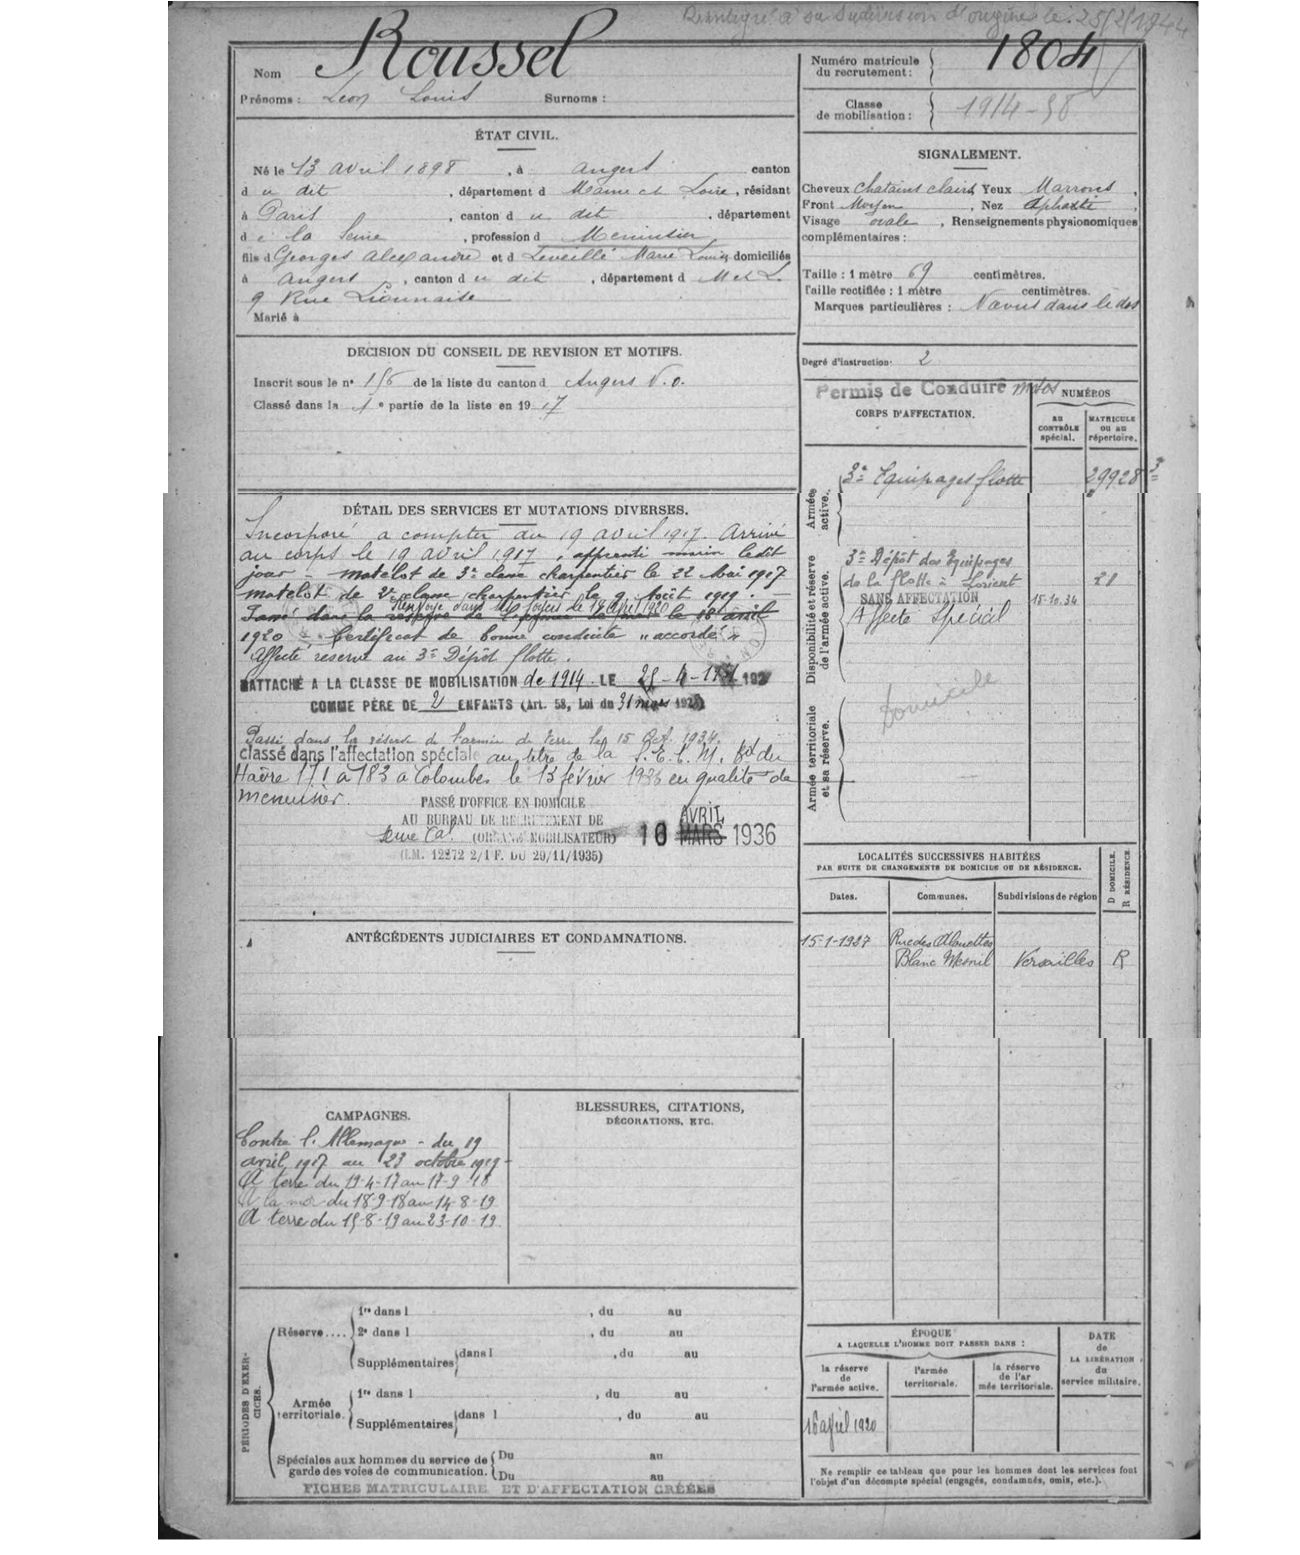 Réintégré à sa subdivision d'origine le 25/2/1944
Nom Roussel
Prénoms : Leon Louis Surnoms :
Numéro matricule du recrutement : 1804
Classe de mobilisation : 1914 - 38
ÉTAT CIVIL.
Né le 13 avril 1898, à Angers canton
d u dit, département d Maine et Loire, résidant
à Paris, canton d u dit, département
d e la Seine, profession d Menuisier
fils d Georges Alexandre et d Leveillé Marie Louise domiciliés
à Angers, canton d u dit, département d M et L.
9 Rue Lionnaise
Marié à
SIGNALEMENT.
Cheveux chatains clairs Yeux Marrons,
Front Moyen, Nez aphaste,
Visage ovale, Renseignements physionomiques
complémentaires :
Taille : 1 mètre 69 centimètres.
Taille rectifiée : 1 mètre centimètres.
Marques particulières : Nœvus dans le dos
Degré d'instruction : 2
DECISION DU CONSEIL DE REVISION ET MOTIFS.
Inscrit sous le n° 156 de la liste du canton d Angers N.O.
Classé dans la 1e partie de la liste en 1917
Permis de Conduire motos
CORPS D'AFFECTATION.
NUMÉROS
AU CONTRÔLE spécial.
MATRICULE OU AU répertoire.
Armée active.
3e Equipages flotte 29928 3=
Disponibilité et réserve de l'armée active.
3e Dépôt des Equipages
de la flotte à Lorient 28
SANS AFFECTATION 15-10.34
Affecté Spécial
Armée territoriale et sa réserve.
Domicile
DÉTAIL DES SERVICES ET MUTATIONS DIVERSES.
Incorporé à compter du 19 avril 1917. Arrivé
au corps le 19 avril 1917, apprenti marin ledit
jour - matelot de 3e classe charpentier le 22 Mai 1917
matelot de 2e classe charpentier le 9 Août 1919. -
Renvoyé dans ses foyers le 16 avril 1920
Passé dans la réserve de l'armée de mer le 16 avril
1920 Certificat de bonne conduite "accordé"
Affecté réserve au 3e Dépôt flotte.
RATTACHÉ A LA CLASSE DE MOBILISATION de 1914 LE 25-4-1931 192
COMME PÈRE DE 2 ENFANTS (Art. 58, Loi du 31 mars 1928)
Passé dans la réserve de l'armée de terre le 15 Oct. 1934.
classé dans l'affectation spéciale au titre de la S.E.C.M. Bd du
Hâvre 171 à 183 à Colombes le 13 février 1936 en qualité de
menuisier.
PASSÉ D'OFFICE EN DOMICILE
AU BUREAU DE RECRUTEMENT DE
Seine Cal (ORGANE MOBILISATEUR) 10 MARS AVRIL 1936
(I.M. 12272 2/1 F. DU 29/11/1935)
LOCALITÉS SUCCESSIVES HABITÉES
PAR SUITE DE CHANGEMENTS DE DOMICILE OU DE RÉSIDENCE.
Dates. Communes. Subdivisions de région D DOMICILE. R RÉSIDENCE
15-1-1927 Rue des Alouettes
Blanc Mesnil Versailles R
ANTÉCÉDENTS JUDICIAIRES ET CONDAMNATIONS.
CAMPAGNES.
Contre l'Allemagne - du 19
avril 1917 au 23 octobre 1919 -
A terre du 19-4-17 au 17-9-18
A la mer du 18-9-18 au 14-8-19
A terre du 15-8-19 au 23-10-19
BLESSURES, CITATIONS,
DÉCORATIONS, ETC.
PÉRIODES D'EXERCICES.
Réserve.... 1re dans l , du au
2e dans l , du au
Supplémentaires dans l , du au
Armée territoriale. 1re dans l , du au
Supplémentaires dans l , du au
Spéciales aux hommes du service de
garde des voies de communication. Du au
Du au
FICHES MATRICULAIRE ET D'AFFECTATION CRÉÉES
ÉPOQUE
A LAQUELLE L'HOMME DOIT PASSER DANS :
la réserve de l'armée active.
l'armée territoriale.
la réserve de l'armée territoriale.
DATE de LA LIBÉRATION du service militaire.
16 avril 1920
Ne remplir ce tableau que pour les hommes dont les services font
l'objet d'un décompte spécial (engagés, condamnés, omis, etc.).